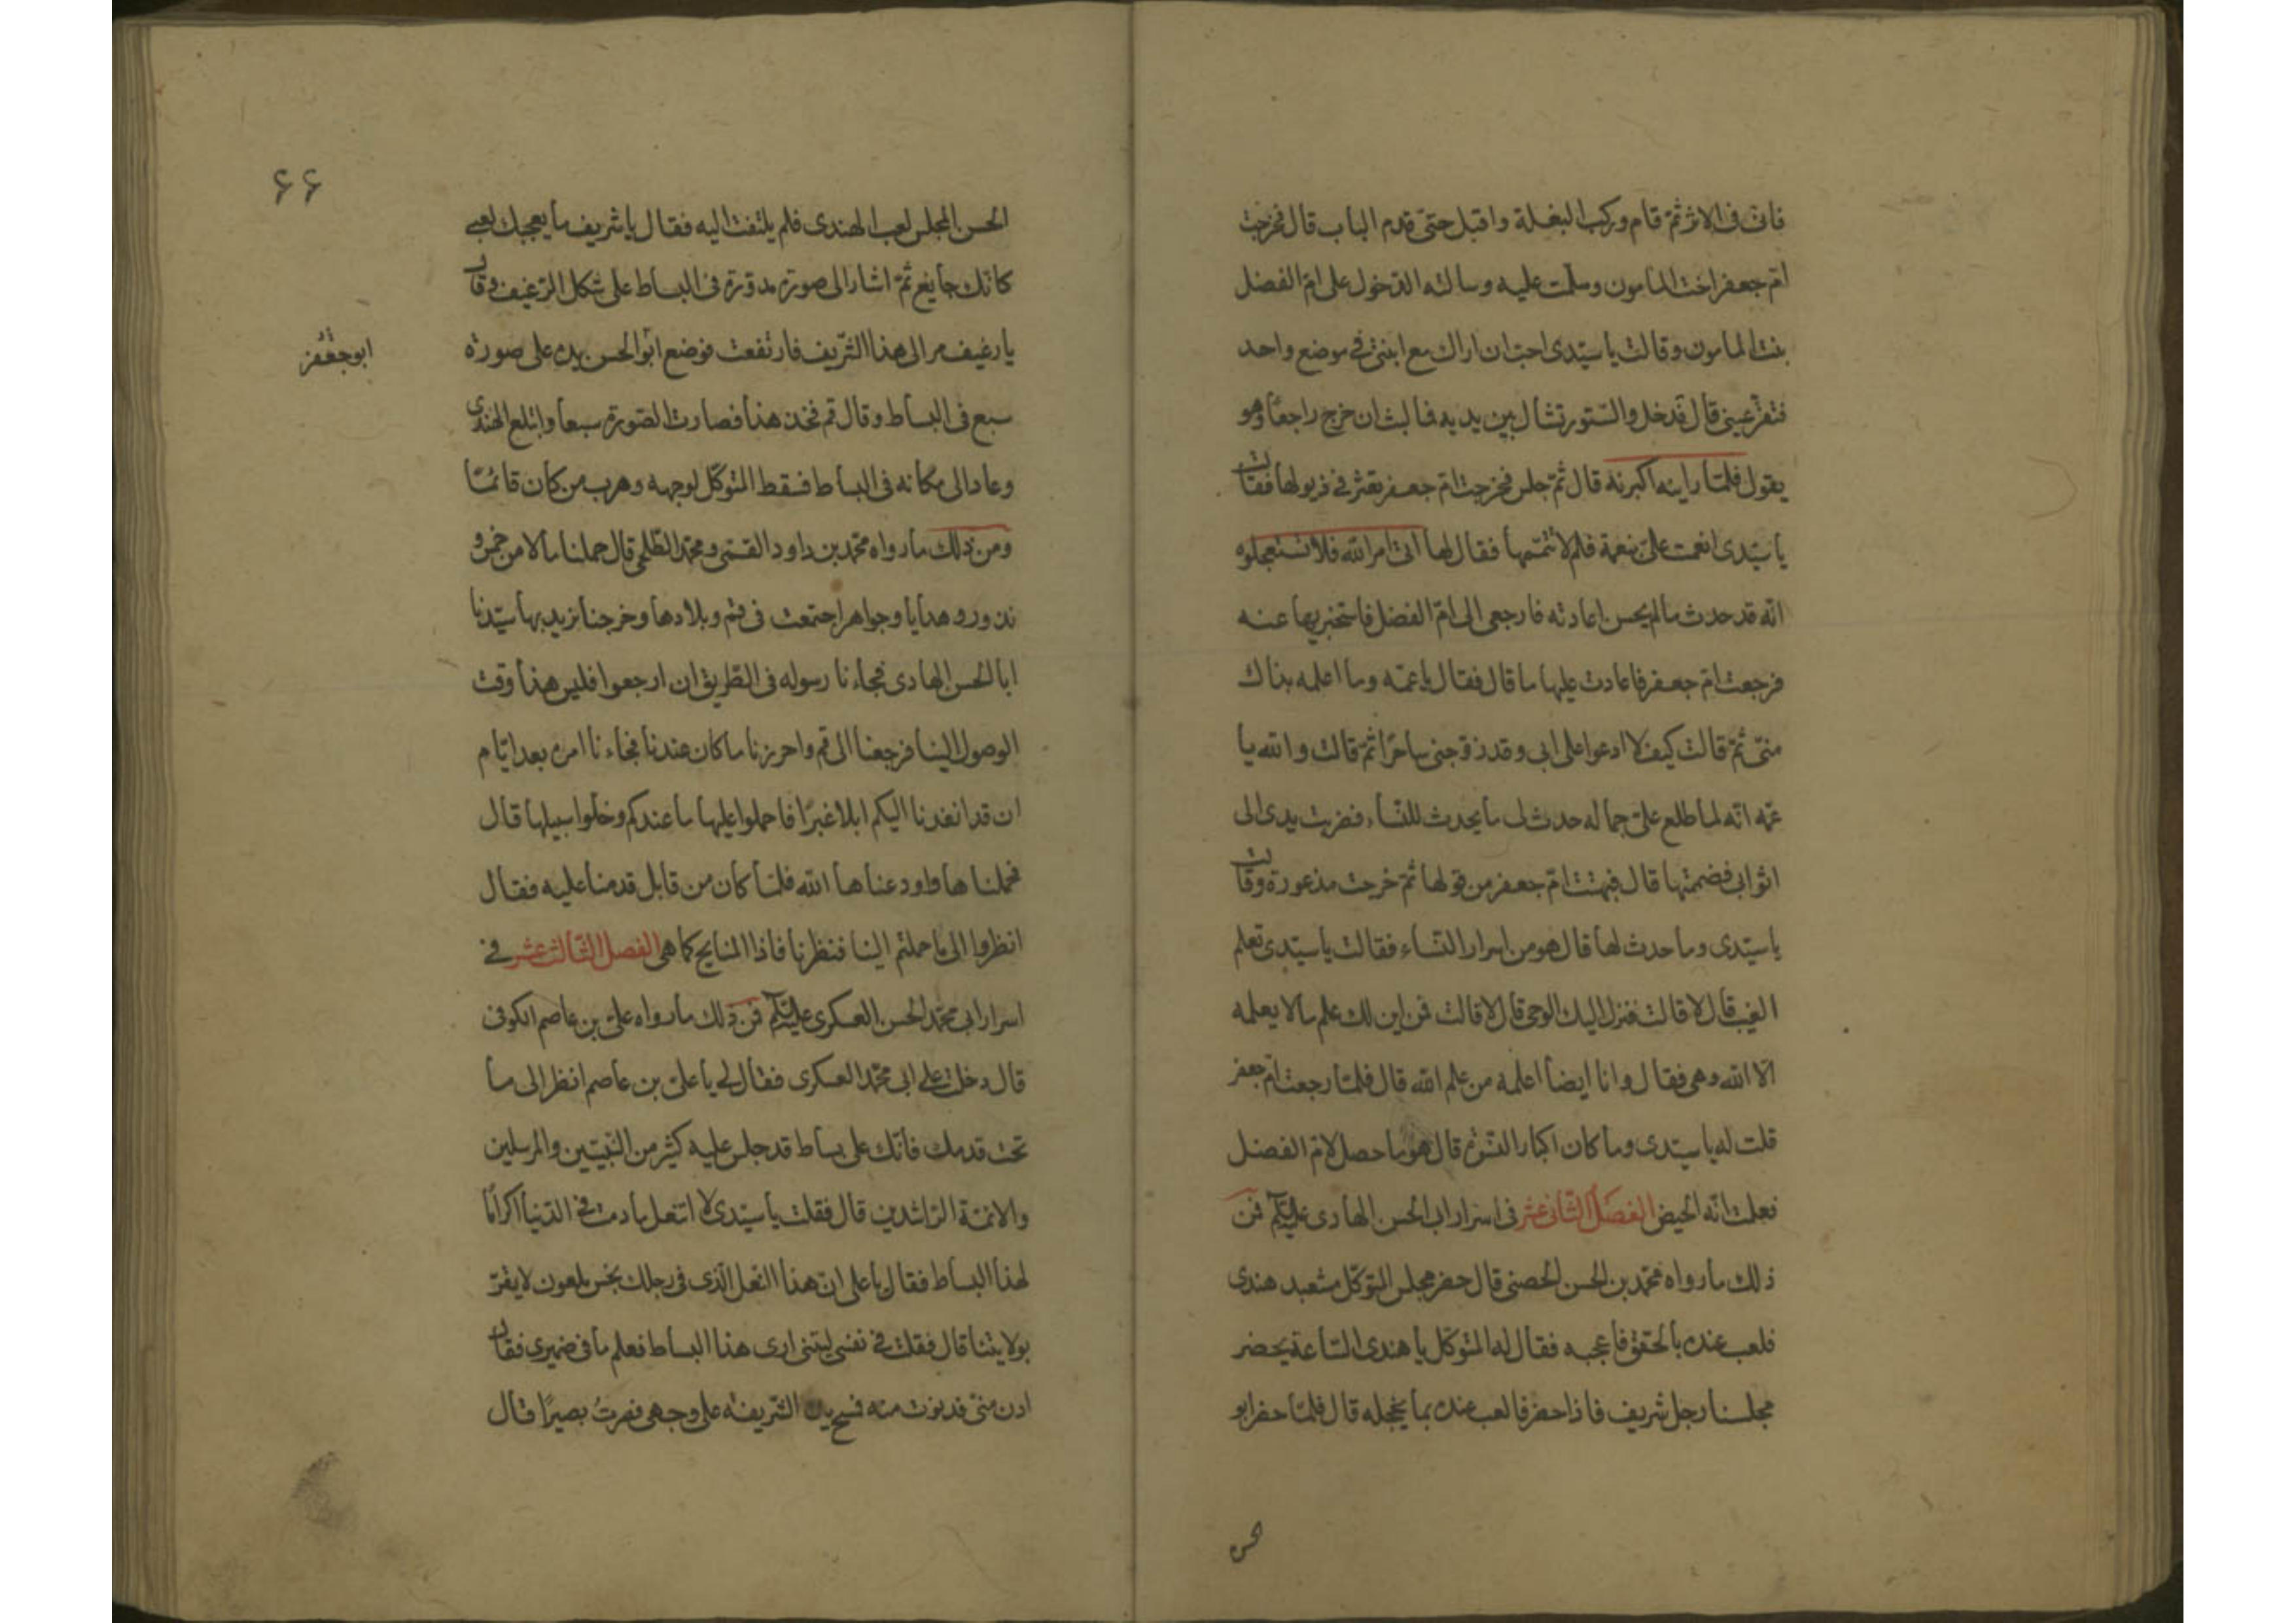 فانى فى الاثر ثمّ قام وركب البغلة واقبل حتّى قدم الباب قال فخرجت
امّ جعفر اخت المامون وسلّمت عليه وسالته الدّخول على امّ الفضل
بنت المامون وقالت يا سيّدى احبّ ان اراك مع ابنتى فى موضع واحد
فتقرّ عينى قال فدخل والسّتور تشال بين يديه فما لبث ان خرج راجعًا وهو
يقول فلمّا راينه اكبرنه قال ثمّ جلس فخرجت امّ جعفر تعثر فى ذيولها فقالت
يا سيّدى انعمت علىّ بنعمة فلم لا تتمّمها فقال لها اتى امر الله فلا تستعجلوه
انّه قد حدث ما لم يحسن اعادته فارجعى الى امّ الفضل فاستخبريها عنه
فرجعت امّ جعفر فاعادت عليها ما قال فقال يا عمّه وما اعلمه بذاك
منّى ثمّ قالت كيف لا ادعوا على ابى وقد زوّجنى ساحرًا ثمّ قالت والله يا
عمّه انّه لما طلع علىّ جماله حدث لى ما يحدث للنّساء فضربت يدى الى
اثوابى فضممتها قال فبهتت امّ جعفر من قولها ثمّ خرجت مذعورة وقالت
يا سيّدى وما حدث لها قال هو من اسرار النّساء فقالت يا سيّدى تعلم
الغيب قال لا قالت فنزل اليك الوحى قال لا قالت فمن اين لك علم ما لا يعلمه
الّا الله وهى فقال وانا ايضا اعلمه من علم الله قال فلمّا رجعت امّ جعفر
قلت له يا سيّدى وما كان اكبار النّسوة قال هو ما حصل لامّ الفضل
فعلمت انّه الحيض الفصل الثّانى عشر فى اسرار ابى الحسن الهادى عليه السّلام فمن
ذلك ما رواه محمّد بن الحسن الحصنى قال حضر مجلس المتوكّل مشعبد هندى
فلعب عنده بالحقق فاعجبه فقال له المتوكّل يا هندى السّاعة يحضر
مجلسنا رجل شريف فاذا حضر فالعب عنده بما يخجله قال فلمّا حضر ابو
الحسن
٦٦
الحسن المجلس لعب الهندى فلم يلتفت اليه فقال يا شريف ما يعجبك لعبى
كانّك جايع ثمّ اشار الى صورة مدوّرة فى البساط على شكل الرّغيف وقال
يا رغيف مر الى هذا الشّريف فارتفعت فوضع ابو الحسن يده على صورة
ابو جعفر
سبع فى البساط وقال قم فخذ هذا فصارت الصّورة سبعا وابتلع الهندى
وعاد الى مكانه فى البساط فسقط المتوكّل لوجهه وهرب من كان قائمًا
ومن ذلك ما رواه محمّد بن داود القمّى ومحمّد الطّلحى قال حملنا مالا من خمس و
نذور وهدايا وجواهر اجتمعت فى قم وبلادها وخرجنا نريد بها سيّدنا
ابا الحسن الهادى فجاءنا رسوله فى الطّريق ان ارجعوا فليس هذا وقت
الوصول الينا فرجعنا الى قم واحرزنا ما كان عندنا فجاءنا امره بعد ايّام
ان قد انفذنا اليكم ابلا غبرًا فاحملوا عليها ما عندكم وخلّوا سبيلها قال
فحملناها واودعناها الله فلمّا كان من قابل قدمنا عليه فقال
انظروا الى ما حملتم الينا فنظرنا فاذا المنايح كما هى الفصل الثّالث عشر فى
اسرار ابى محمّد الحسن العسكرى عليه السّلام فمن ذلك ما رواه علىّ بن عاصم الكوفى
قال دخلت على ابى محمّد العسكرى فقال لى يا علىّ بن عاصم انظر الى ما
تحت قدمك فانّك على بساط قد جلس عليه كثير من النّبيّين والمرسلين
والائمّة الرّاشدين قال فقلت يا سيّدى لا اتنعل ما دمت فى الدّنيا اكرامًا
لهذا البساط فقال يا على انّ هذا النّعل الّذى فى رجلك نجس ملعون لا يقرّ
بولايتنا قال فقلت فى نفسى ليتنى ارى هذا البساط فعلم ما فى ضميرى فقال
ادن منّى فدنوت منه فمسح يده الشّريفة على وجهى فصرتُ بصيرًا قال